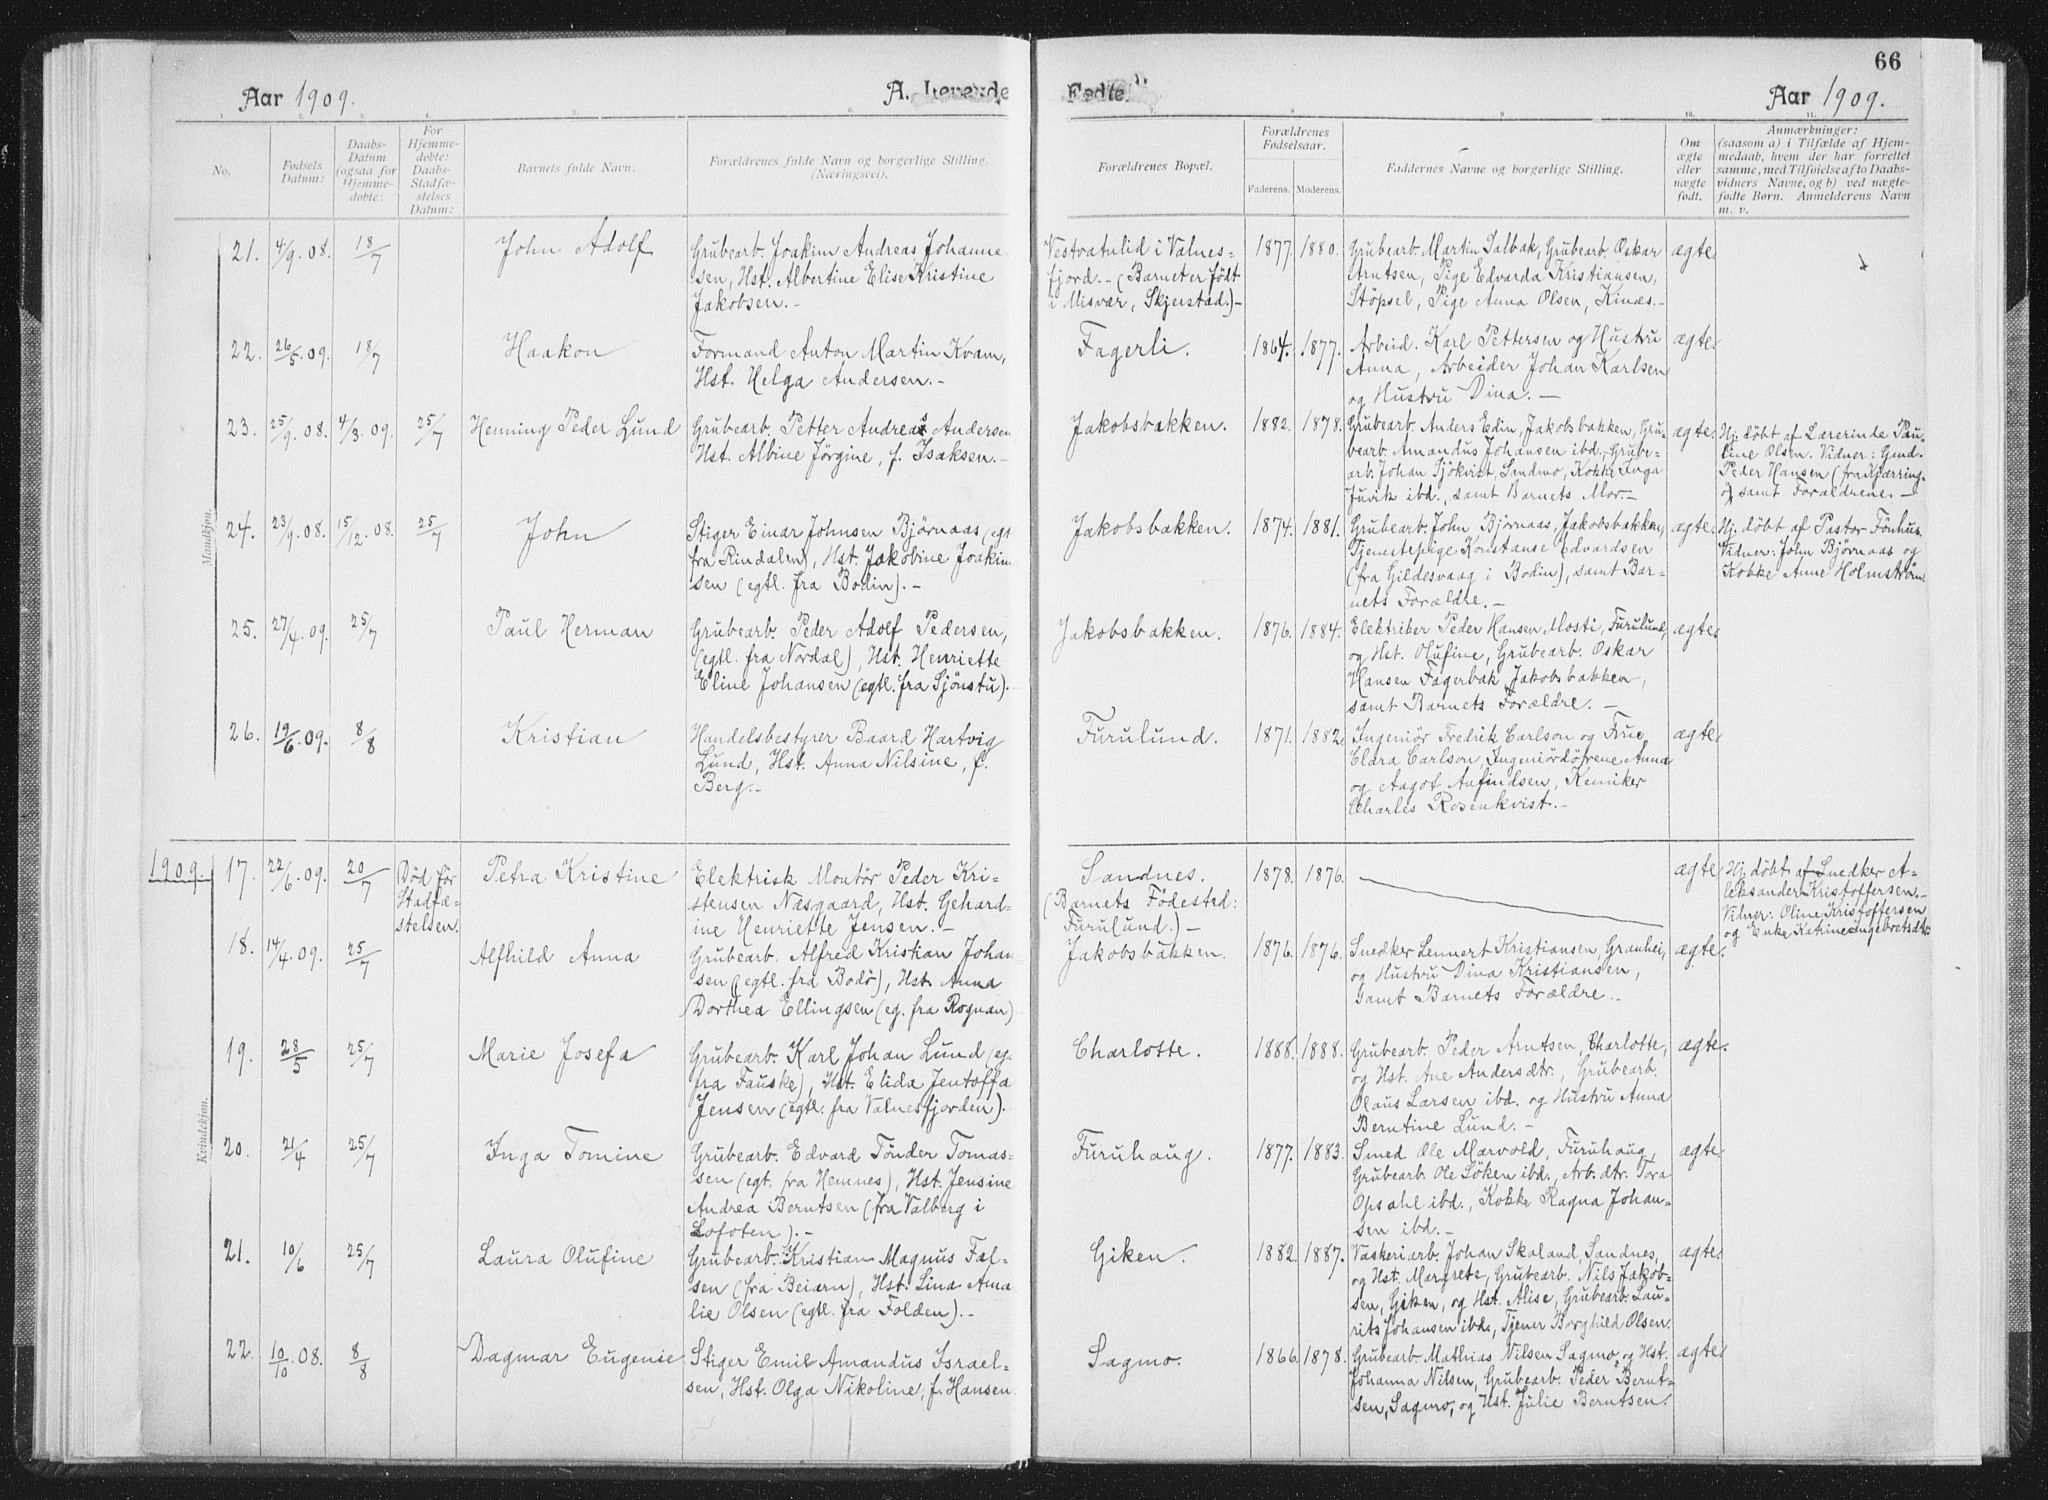 66
Aar 1909. A. Levende Fødte. Aar 1909.
1. 2. 3. 4. 5. 6. 7. 8. 9. 10. 11.
No.
Fødsels Datum:
Daabs-Datum (ogsaa for Hjemme-døbte:
For Hjemme-døbte: Daabs-Stadfæ-stelses Datum:
Barnets fulde Navn:
Forældrenes fulde Navn og borgerlige Stilling.
(Næringsvei).
Forældrenes Bopæl.
Forældrenes Fødselsaar.
Faderens. Moderens.
Faddernes Navne og borgerlige Stilling.
Om ægte eller nægte født.
Anmærkninger:
(saasom a) i Tilfælde af Hjem-
medaab, hvem der har forrettet
samme, med Tilføielse af to Daabs-
vidners Navne, og b) ved nægte-
fødte Børn. Anmelderens Navn
m. v.
Mandkjøn.
21. 4/9.08. 18/7 John Adolf
Grubearb. Joakim Andreas Johanne-
sen, Hst. Albertine Elise Kristine
Jakobsen.-
Vestvatnlid i Valnes-
fjord.- (Barnet er født
i Misvær, Skjerstad.)-
1877. 1880.
Grubearb. Martin Salbak, Grubearb. Oskar
Arntsen, Pige Edvarda Kristiansen,
Stöpsel, Pige Anna Olsen, Kinæs.-
ægte.
22. 26/5.09. 18/7 Haakon
Formand Anton Martin Kvam,
Hst. Helga Andersen.-
Fagerli. 1864. 1877.
Arbeid. Karl Pettersen og Hustru
Anna, Arbeider Johan Karlsen
og Hustru Dina.-
ægte.
23. 25/9.08. 4/3.09. 25/7 Henning Peder Lund
Grubearb. Petter Andreas Andersen
Hst. Albine Jörgine, f. Isaksen.-
Jakobsbakken. 1882. 1878.
Grubearb. Anders Edin, Jakobsbakken, Gru-
bearb. Amandus Johansen ibd., Grube-
arb. Johan Sjökvist, Sandmo, Kokke Inga
Juvik ibd., samt Barnets Mor.-
ægte.
Hj. döbt af Lærerinde Pau-
line Olsen. Vidner: Gmd.
Peder Hansen (fra Kjærring-
ö) samt Forældrene.-
24. 23/9.08. 15/12.08. 25/7 John
Stiger Einar Johnsen Björnaas (egt
fra Rindalen), Hst. Jakobine Joakim
sen (egtl. fra Bodin).-
Jakobsbakken. 1874. 1881.
Grubearb. John Björnaas, Jakobsbakken,
Tjenestepige Konstanse Edvardsen
(fra Gildesvaag i Bodin), samt Bar-
nets Forældre.-
ægte.
Hj. döbt af Pastor Fönhus.
Vidner: John Björnaas og
Kokke Anne Holmström.
25. 27/4.09. 25/7 Paul Herman
Grubearb. Peder Adolf Pedersen,
(egtl. fra Nordal), Hst. Henriette
Eline Johansen (egtl. fra Sjönstu).
Jakobsbakken. 1876. 1884.
Elektriker Peder Hansen Mosti, Furulund,
og Hst. Olufine, Grubearb. Oskar
Hansen Fagerbak, Jakobsbakken,
samt Barnets Forældre.-
ægte.
26. 19/6.09. 8/8 Kristian
Handelsbestyrer Baard Hartvig
Lund, Hst. Anna Nilsine, f.
Berg.-
Furulund. 1871. 1882.
Ingeniör Fredrik Carlson og Frue
Clara Carlson, Ingeniördötrene Anna
og Aagot Anfindsen, Kemiker
Charles Rosenkvist.-
ægte.
Kvindekjøn.
1909. 17. 22/6.09. 20/7 Död för Stadfæ-stelsen. Petra Kristine
Elektrisk Montör Peder Kri-
stensen Næsgaard, Hst. Gehard-
ine Henriette Jensen.-
Sandnes.
(Barnets Födested:
Furulund.)-
1878. 1876. ægte
Hj. döbt af Snedker A-
leksander Kristoffersen.-
Vidner: Oline Kristoffersen
og Enke Katrine Ingebretsdtr.
18. 14/4.09. 25/7 Alfhild Anna
Grubearb. Alfred Kristian Johan-
sen (egtl. fra Bodö), Hst. Anna
Dorthea Ellingsen (eg. fra Rognan)
Jakobsbakken. 1876. 1876.
Snedker Lennert Kristiansen, Granhei,
og Hustru Dina Kristiansen,
samt Barnets Forældre.-
ægte.
19. 28/5 25/7 Marie Josefa
Grubearb. Karl Johan Lund (eg.
fra Fauske), Hst. Elida Jentoffa
Jensen (egtl. fra Valnesfjorden).
Charlotte. 1888. 1888.
Grubearb. Peder Arntsen, Charlotte,
og Hst. Ane Andersdtr., Grubearb.
Olaus Larsen ibd. og Hustru Anna
Berntine Lund.-
ægte.
20. 21/4 25/7 Inga Tomine
Grubearb. Edvard Tönder Tomas-
sen (egt. fra Hemnes), Hst. Jensine
Andrea Berntsen (fra Valberg i
Lofoten).-
Furuhaug. 1877. 1883.
Smed Ole Marvold, Furuhaug,
Grubearb. Ole Löken ibd., Arb.dtr. Tora
Opsahl ibd., Kokke Ragna Johan-
sen ibd.-
ægte.
21. 10/6 25/7 Laura Olufine
Grubearb. Kristian Magnus Fal-
sen (fra Beiarn), Hst. Lina Ama
lie Olsen (egtl. fra Folden).-
Giken. 1882. 1887.
Vaskeriarb. Johan Skaland, Sandnes,
og Hst. Margrete, Grubearb. Nils Jakob-
sen, Giken, og Hst. Alise, Grubearb. Lau-
rits Johansen ibd., Tjener Borghild Olsen.
ægte.
22. 10/10.08. 8/8 Dagmar Eugenie
Stiger Emil Amandus Israel-
sen, Hst. Olga Nikoline, f. Hansen.
Sagmo. 1866. 1878.
Grubearb. Mathias Nilsen Sagmo, og Hst.
Johanna Nilsen, Grubearb. Peder Bernt-
sen, Sagmo, og Hst. Julie Berntsen.
ægte.